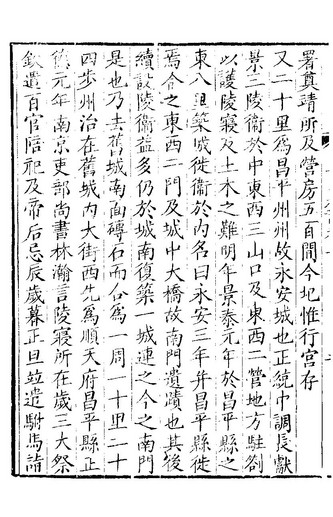 署奠靖所及營房五百間今圯惟行宫存
又二十里為昌平州州故永安城也正統中調長獻
景三陵衞於中東西三山口及東西二營地方駐劄
以護陵寢及土木之難明年景泰元年於昌平縣之
東八里築城徙衞於內名曰永安三年并昌平縣徙
焉今之東西二門及城中大橋故南門遺蹟也其後
續設陵衞益多仍於城南復築一城連之今之南門
是也乃去舊城南面磚石而合為一周一十里二十
四步州治在舊城內大街西先為順天府昌平縣正
德元年南京吏部尚書林瀚言陵寢所在歲三大祭
欽遣百官陪祀及帝后忌辰歲暮正旦竝遣駙馬詣